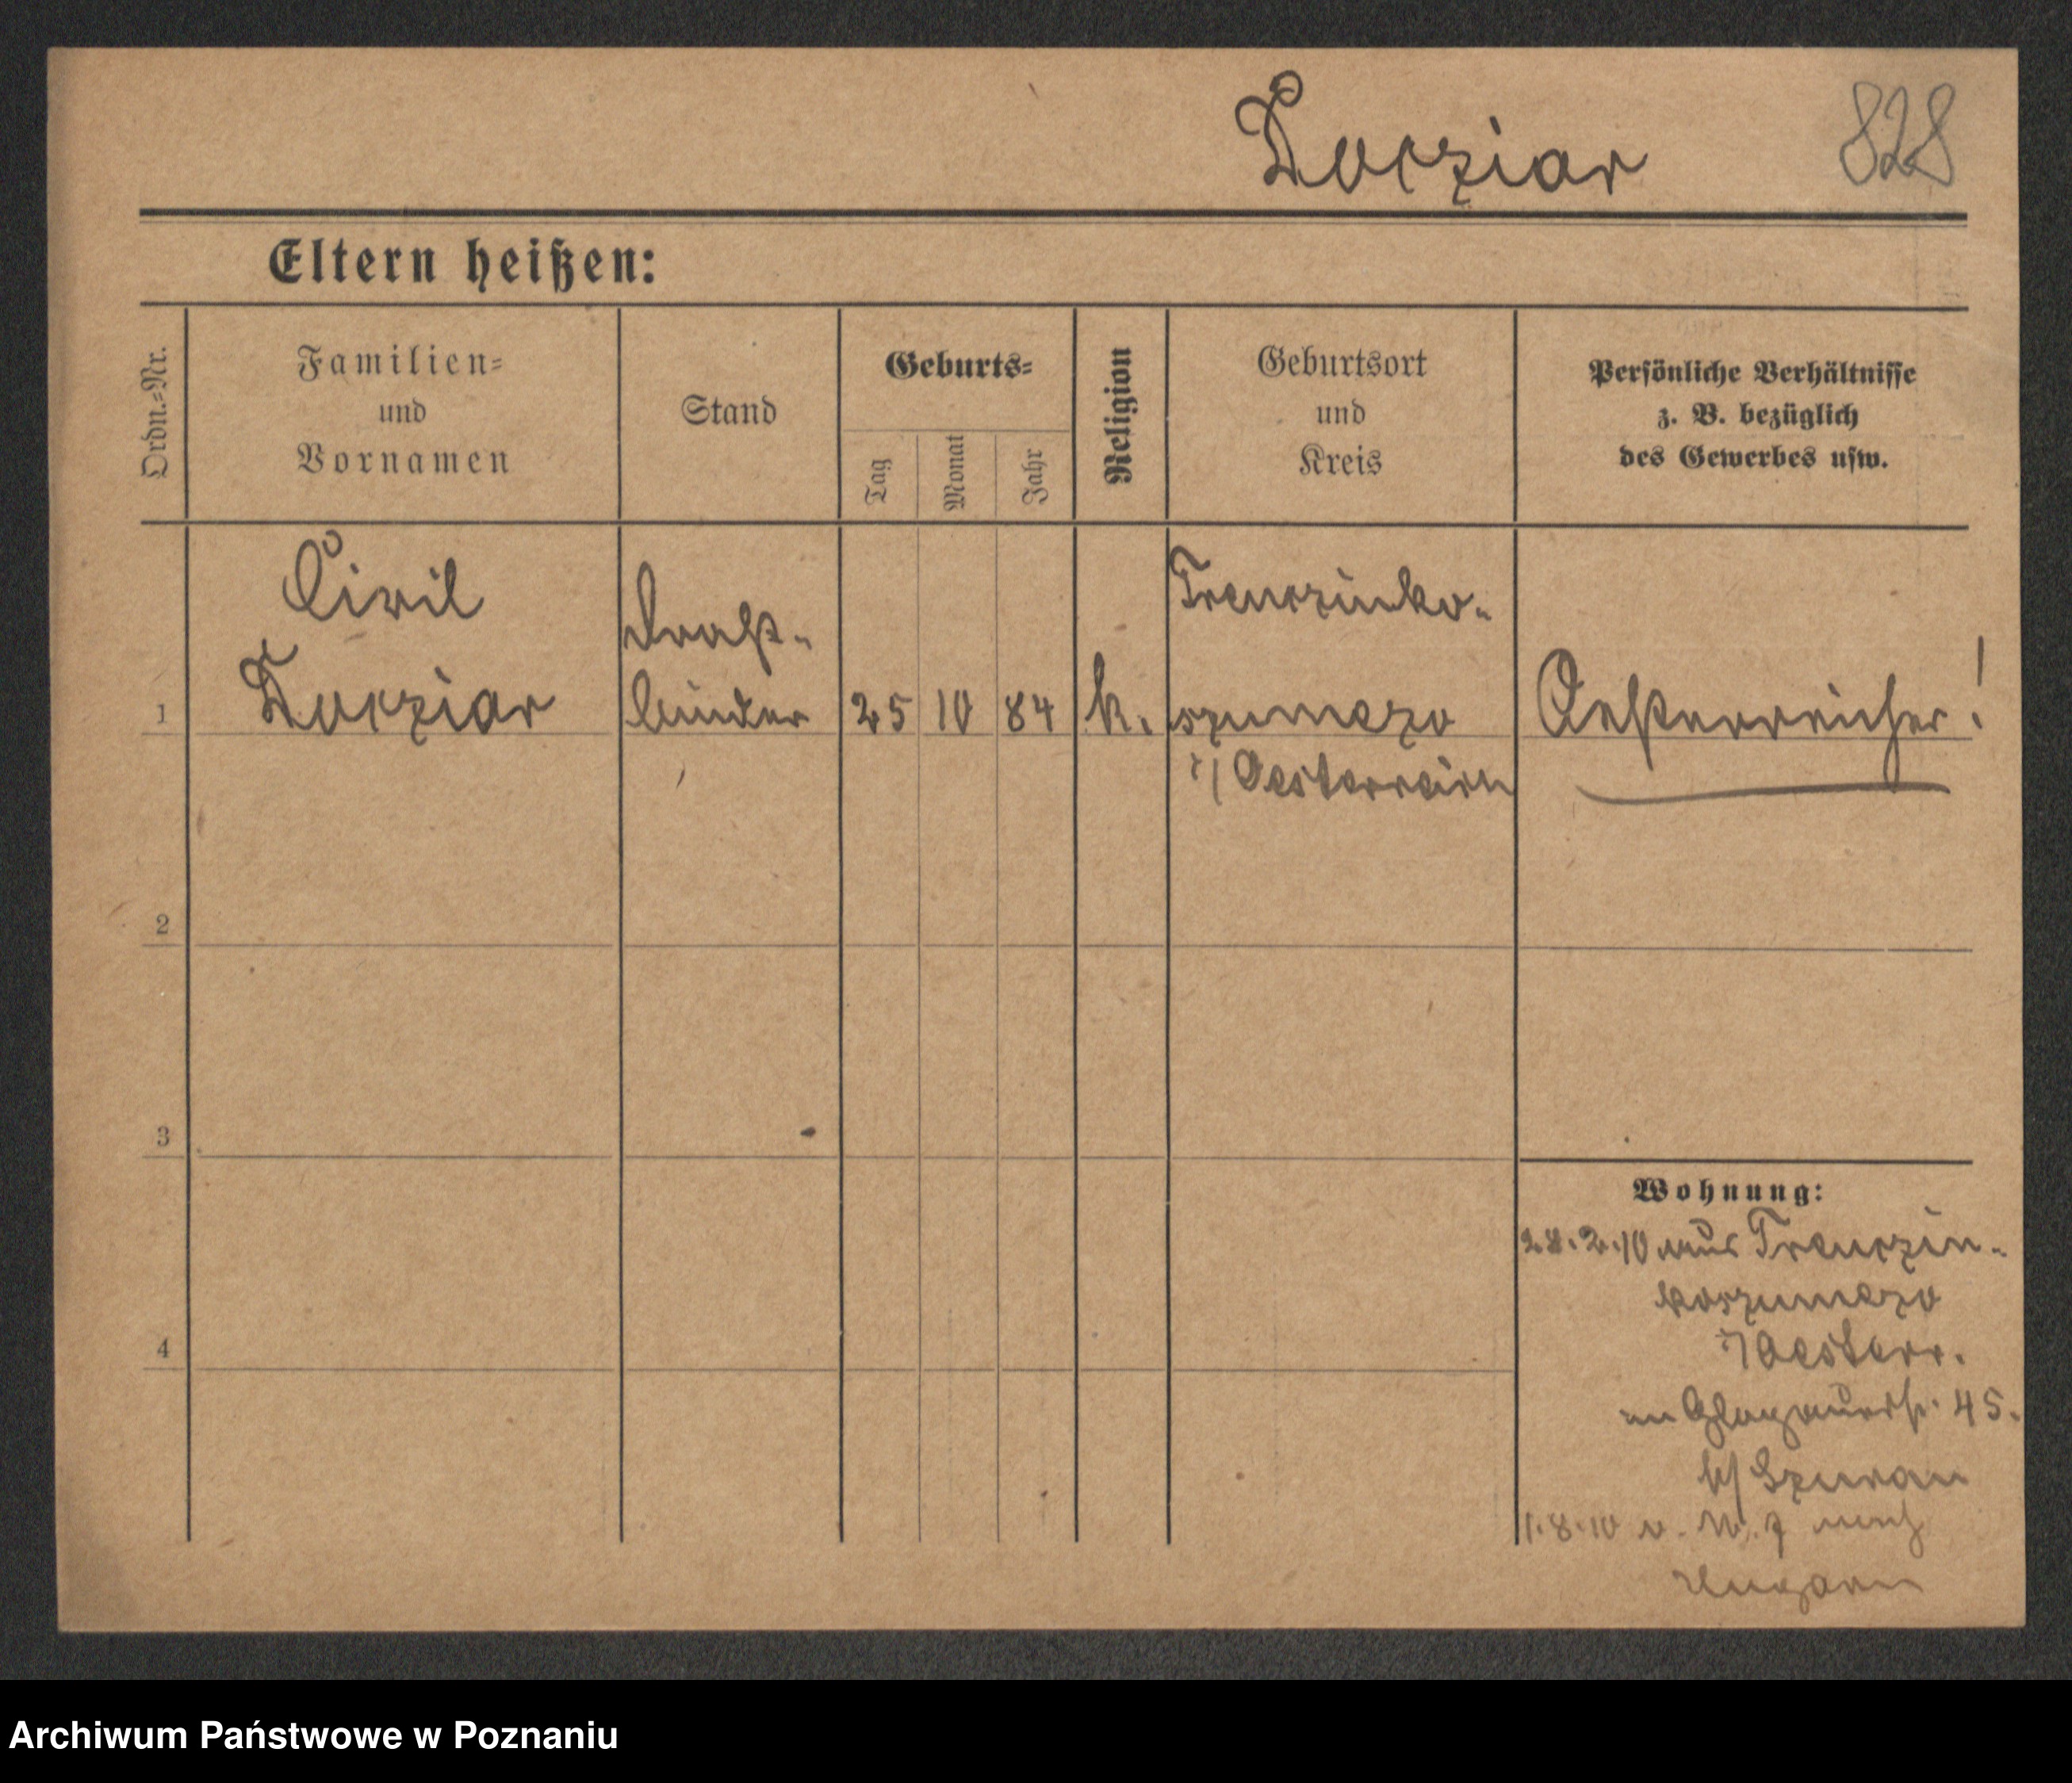 Dorziar 828
Eltern heißen:
Ordn.=Nr.
Familien=
und
Vornamen
Stand
Geburts=
Tag
Monat
Jahr
Religion
Geburtsort
und
Kreis
Persönliche Verhältnisse
z. B. bezüglich
des Gewerbes usw.
1
Civil
Dorziar
Draht-
binder
25 10 84
k.
Trenczinko-
szumezo
i/ Oesterreich
Oesterreicher!
2
3
4
Wohnung:
28.2.10 aus Trenczin-
koszumezo
i/ Oesterr.
Glogauerstr. 45.
b/
1.8.10 nach
Ungarn
Archiwum Państwowe w Poznaniu